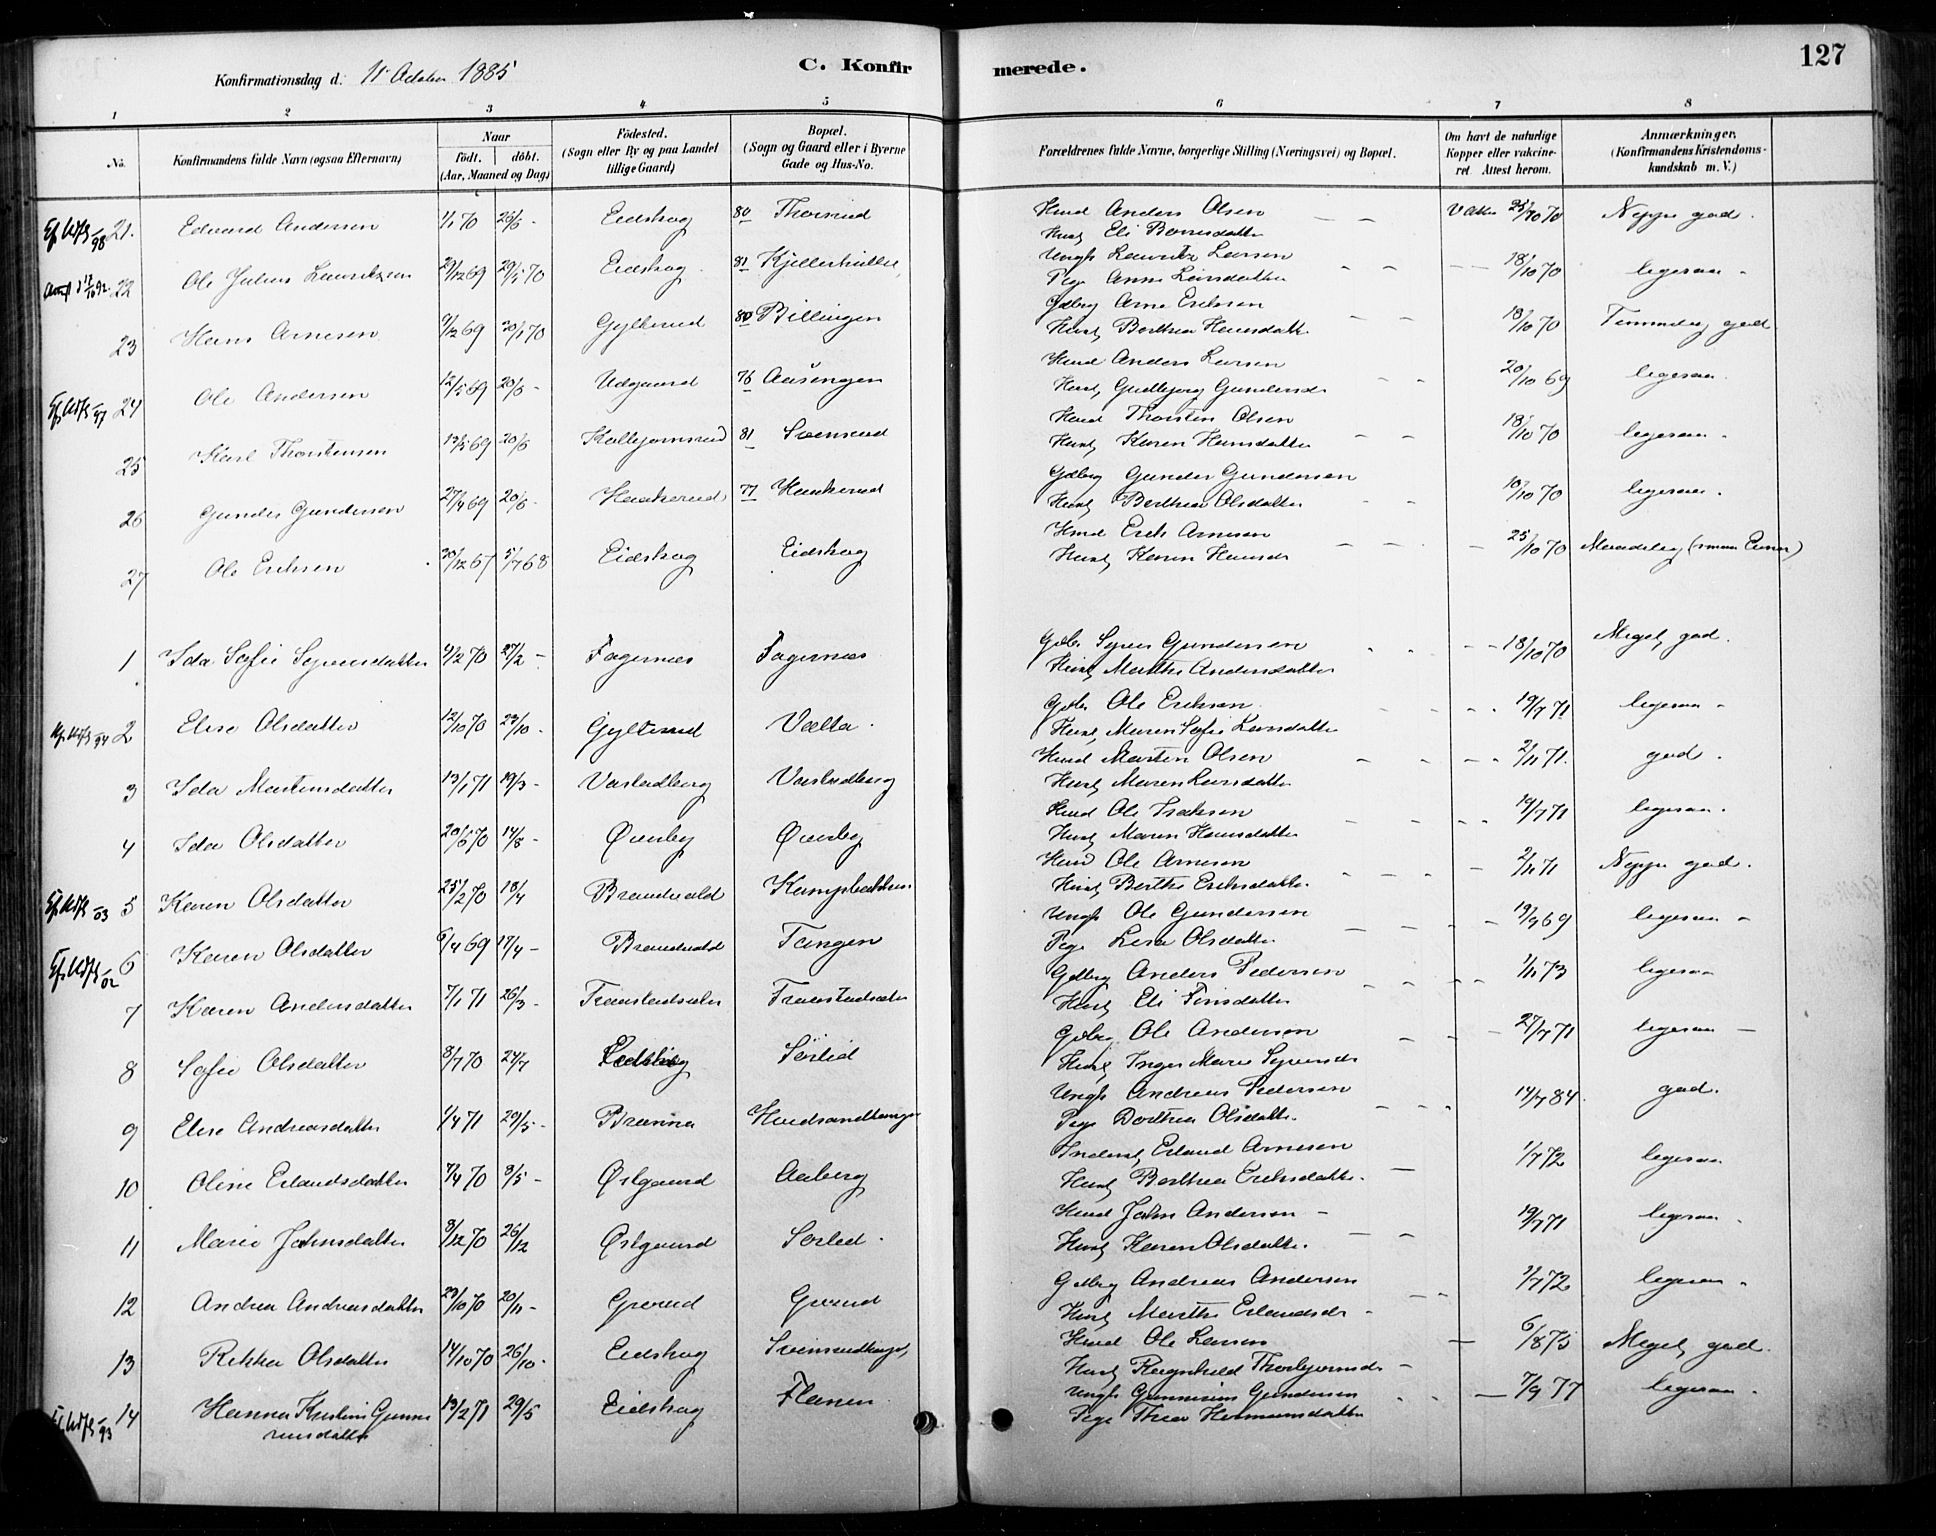 127
Konfirmationsdag d. 11 October 1885
C. Konfirmerede.
1 2 3 4 5 6 7 8
No.
Konfirmandens fulde Navn (ogsaa Efternavn)
Naar födt. döbt. (Aar, Maaned og Dag)
Födested. (Sogn eller By og paa Landet tillige Gaard)
Bopæl. (Sogn og Gaard eller i Byerne Gade og Hus-No.
Forældrenes fulde Navne, borgerlige Stilling (Næringsvei) og Bopæl.
Om havt de naturlige Kopper eller vakcineret Attest herom.
Anmærkninger. (Konfirmandens Kristendomskundskab m. V.)
21. Edvard Andersen 1/1 70 26/5 - Eidskog 80 Thorsrud Husmd Anders Olsen 25/10 70 Neppe god.
22 Ole Julius Lauritzsen 29/12 69 29/5 70 Eidskog 81 Ungk Lauritz Larsen Pige Anne Larsdatter 18/10 70 ligesaa
23 Hans Arnesen 9/12 69 20/1 70 Gylterud 80 Billingen Gdbrg Arne Eriksen Hust Berthea Hansdatt 18/10 70 Temmelig god
24 Ole Andersen 12/5 69 20/6 - Udgaard 76 Aasengen Husmd Anders Larsen Hust Gudbjørg Gundersd 20/10 69 ligesaa.
25 Karl Thorstensen 13/5 69 20/6 81 Svensrud Husmd Thorsten Olsen Hust Karen Hansdatter 18/10 70 ligesaa.
26 Gunder Gundersen 27/4 69 20/6 - Haukerud 77 Haukerud Gdbrg Gunder Gundersen Hust Berthea Olsdatter 18/10 70 ligesaa.
27 Ole Eriksen 20/12 67 5/7 68 Eidskog Eidskog Husmd Erik Arnesen Hust Karen Hansdr 25/10 70
1 Ida Sofie Syversdatter 9/2 70 27/2 - Fagernæs Fagernæs Gdbr Syver Gundersen Hust Marthe Andersdatter 18/10 70 Meget god.
2 Elise Olsdatter 12/10 70 23/10 - Gylterud Vælta. Gdbr Ole Eriksen. Hust Maren Sofie Larsdatter 19/7 71 ligesaa -
3 Ida Martinsdatter 13/1 71 19/3 - Vastadberg Vastadberg Husmd Martin Olsen Hust Maren Larsdatter 2/11 71. god.
4 Ida Olsdatter 20/6 70 14/8 - Øverby Øverby Husmd Ole Isaksen Hust Maren Hansdatter 19/7 71 ligesaa.
5 Karen Olsdatter 25/2 70 18/4 Brandvold Kampbakken Husmd Ole Arnesen Hust Berthe Eriksdatter. 2/11 71 Neppe god.
6 Karen Olsdatter 6/4 69 17/4 - Brandvold Tangen Ungk Ole Gundersen Pige Lisa Olsdatter 19/9 69 ligesaa -
7 Karen Andersdatter 7/1 71 26/3 - Gdbrg Anders Pedersen Hust Eli Finsdatter 1/11 73 ligesaa
8 Sofie Olsdatter 8/7 70 24/7 Eidskog Sørlid Gdbrg Ole Andersen Hust Inger Marie Syversdr 27/7 71 ligesaa -
9 Elise Andreasdatter 1/4 71 29/5 - Brænna Ungk Andreas Pedersen Pige Dorthea Olsdatter. 14/7 84. god.
10 Oline Erlandsdatter 7/4 70 8/5 - Østgaard Aaberg Inderst Erland Arnesen Hust Berthea Eriksdatter. 1/7 72 ligesaa
11 Marie Johnsdatter 3/12 70 26/12 Østgaard Sørlid. Husmd John Andersen - Hust Karen Olsdatter. 19/7 71 ligesaa.
12 Andrea Andreasdatter 23/10 70 20/11 - Grerud Grerud Gdbrg Andreas Andersen Hust Marthe Erlandsdr - 2/7 72 ligesaa
13 Rikka Olsdatter 14/10 70 26/10. Eidskog Husmd Ole Larsen Hust Ragnhild Thorbjørnsd - 6/8 75 Meget god.
14 Hanna Kristine Gunneriusdatter 13/2 71 29/5 Eidskog Flanen Ungk Gunnerius Gundersen Pige Thea Hermansdatter 7/9 77 ligesaa.